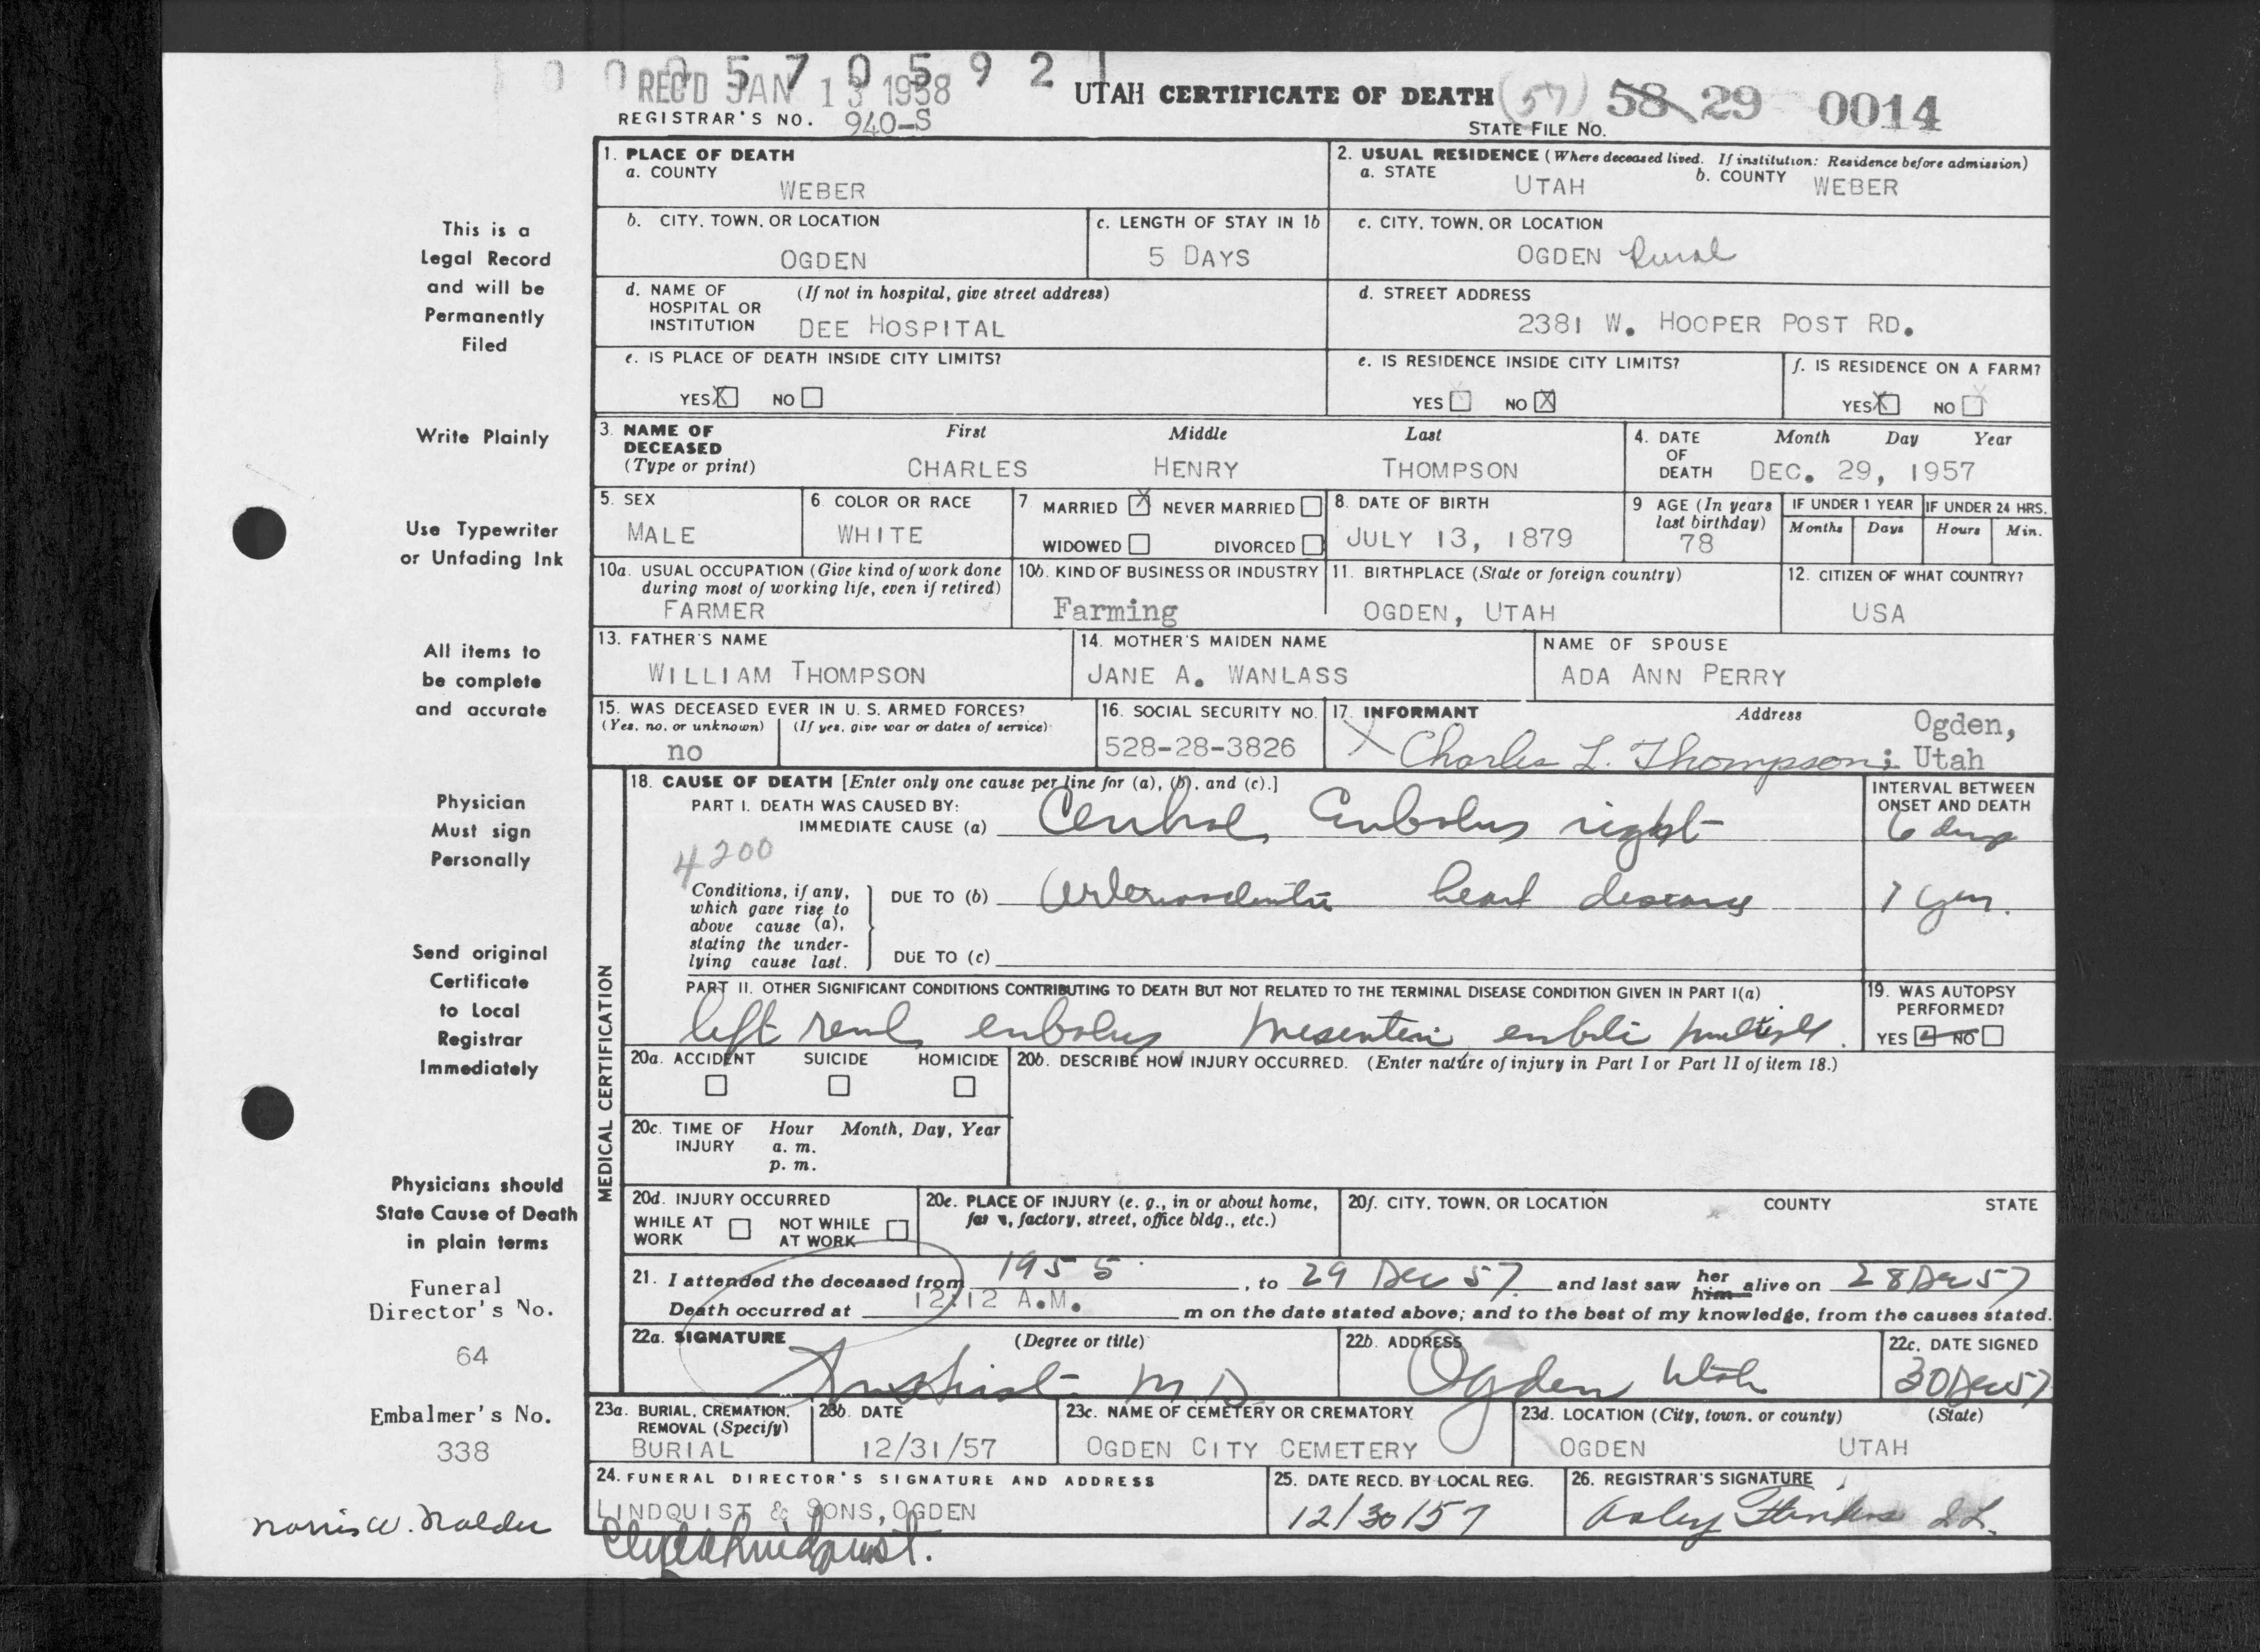 0 0 0 5 7 0 5 9 2 1
REC'D JAN 13 1958
UTAH CERTIFICATE OF DEATH (57) 58 29 0014
REGISTRAR'S NO. 940-S
STATE FILE NO.
1. PLACE OF DEATH
a. COUNTY
WEBER
2. USUAL RESIDENCE (Where deceased lived. If institution: Residence before admission)
a. STATE UTAH b. COUNTY WEBER
b. CITY, TOWN, OR LOCATION
OGDEN
c. LENGTH OF STAY IN 1b
5 DAYS
c. CITY, TOWN, OR LOCATION
OGDEN Rural
d. NAME OF HOSPITAL OR INSTITUTION (If not in hospital, give street address)
DEE HOSPITAL
d. STREET ADDRESS
2381 W. HOOPER POST RD.
e. IS PLACE OF DEATH INSIDE CITY LIMITS?
YES X NO
e. IS RESIDENCE INSIDE CITY LIMITS?
YES NO X
f. IS RESIDENCE ON A FARM?
YES X NO
3. NAME OF DECEASED (Type or print)
First Middle Last
CHARLES HENRY THOMPSON
4. DATE OF DEATH
Month Day Year
DEC. 29, 1957
5. SEX
MALE
6. COLOR OR RACE
WHITE
7 MARRIED X NEVER MARRIED
WIDOWED DIVORCED
8. DATE OF BIRTH
JULY 13, 1879
9 AGE (In years last birthday)
78
IF UNDER 1 YEAR
Months Days
IF UNDER 24 HRS.
Hours Min.
10a. USUAL OCCUPATION (Give kind of work done during most of working life, even if retired)
FARMER
10b. KIND OF BUSINESS OR INDUSTRY
Farming
11. BIRTHPLACE (State or foreign country)
OGDEN, UTAH
12. CITIZEN OF WHAT COUNTRY?
USA
13. FATHER'S NAME
WILLIAM THOMPSON
14. MOTHER'S MAIDEN NAME
JANE A. WANLASS
NAME OF SPOUSE
ADA ANN PERRY
15. WAS DECEASED EVER IN U. S. ARMED FORCES?
(Yes, no, or unknown) (If yes, give war or dates of service)
no
16. SOCIAL SECURITY NO.
528-28-3826
17. INFORMANT Address
X Charles L. Thompson; Ogden, Utah
MEDICAL CERTIFICATION
18. CAUSE OF DEATH [Enter only one cause per line for (a), (b), and (c).]
PART I. DEATH WAS CAUSED BY:
IMMEDIATE CAUSE (a) Cerebral Embolus right
INTERVAL BETWEEN ONSET AND DEATH
6 days
4200
Conditions, if any, which gave rise to above cause (a), stating the underlying cause last.
DUE TO (b) Arteriosclerotic heart disease
DUE TO (c)
PART II. OTHER SIGNIFICANT CONDITIONS CONTRIBUTING TO DEATH BUT NOT RELATED TO THE TERMINAL DISEASE CONDITION GIVEN IN PART I(a)
left renal embolus mesenteric emboli multiple.
19. WAS AUTOPSY PERFORMED?
YES NO
20a. ACCIDENT SUICIDE HOMICIDE
20b. DESCRIBE HOW INJURY OCCURRED. (Enter nature of injury in Part I or Part II of item 18.)
20c. TIME OF INJURY Hour Month, Day, Year
a. m.
p. m.
20d. INJURY OCCURRED
WHILE AT WORK NOT WHILE AT WORK
20e. PLACE OF INJURY (e. g., in or about home, farm, factory, street, office bldg., etc.)
20f. CITY, TOWN, OR LOCATION COUNTY STATE
21. I attended the deceased from 1955, to 29 Dec 57 and last saw her him alive on 28 Dec 57
Death occurred at 12:12 A.M. m on the date stated above; and to the best of my knowledge, from the causes stated.
22a. SIGNATURE (Degree or title)
M.D.
22b. ADDRESS
Ogden Utah
22c. DATE SIGNED
30 Dec 57
23a. BURIAL, CREMATION, REMOVAL (Specify)
BURIAL
23b. DATE
12/31/57
23c. NAME OF CEMETERY OR CREMATORY
OGDEN CITY CEMETERY
23d. LOCATION (City, town, or county) (State)
OGDEN UTAH
24. FUNERAL DIRECTOR'S SIGNATURE AND ADDRESS
LINDQUIST & SONS, OGDEN
25. DATE RECD. BY LOCAL REG.
12/30/57
26. REGISTRAR'S SIGNATURE
This is a
Legal Record
and will be
Permanently
Filed
Write Plainly
Use Typewriter
or Unfading Ink
All items to
be complete
and accurate
Physician
Must sign
Personally
Send original
Certificate
to Local
Registrar
Immediately
Physicians should
State Cause of Death
in plain terms
Funeral
Director's No.
64
Embalmer's No.
338
Norris W. Nalder